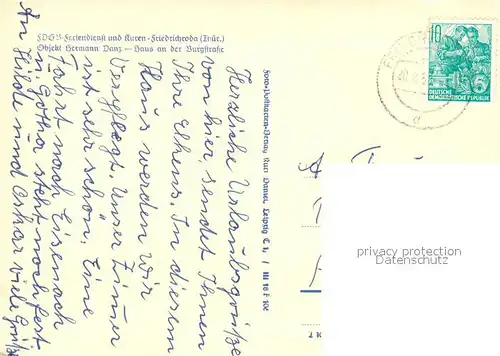 FDGB-Feriendienst und Kuren - Friedrichroda (Thür.)
Objekt Hermann Danz — Haus an der Burgstraße
Herzliche Urlaubsgrüße
von hier sendet Ihnen
Ihre Elhens. In diesem
Haus werden wir
verpflegt. Unser Zimmer
ist sehr schön. Eine
Fahrt nach Eisenach
u. Gotha steht noch fest.
An Hilde und Oskar viele Grüße
Leipzig C 1 / III 18 7
10
DEUTSCHE
DEMOKRATISCHE REPUBLIK
privacy protection
DAMSERVICE.COM